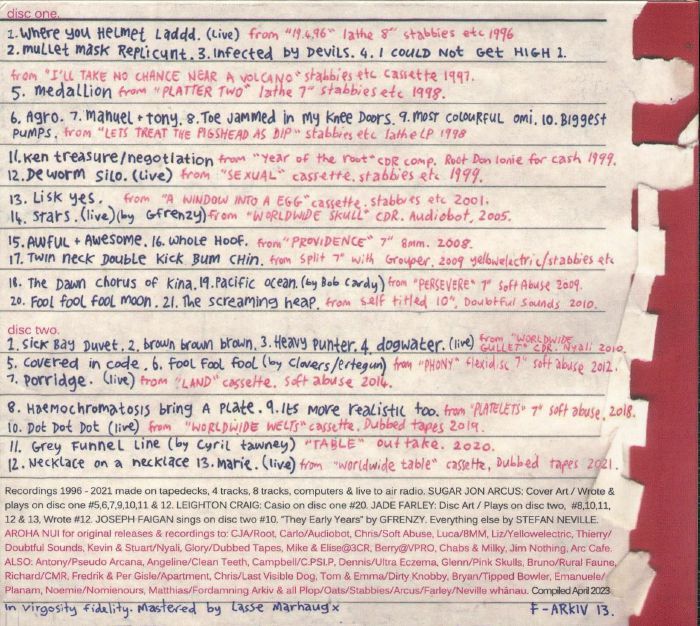 disc one.
1. Where you Helmet Laddd. (Live) from "19.4.96" lathe 8" stabbies etc 1996
2. mullet mask Replicunt. 3. Infected by Devils. 4. I COULD NOT GET HIGH 2.
from "I'LL TAKE NO CHANCE NEAR A VOLCANO" stabbies etc cassette 1997.
5. medallion from "PLATTER TWO" lathe 7" stabbies etc 1998.
6. Agro. 7. Manuel + tony. 8. Toe Jammed in my Knee Doors. 9. most colourful omi. 10. Biggest
pumps. from "LETS TREAT THE PIGSHEAD AS DIP" stabbies etc lathe LP 1998
11. Ken treasure/negotiation from "Year of the root" CDR comp. Root Don Lonie for cash 1999.
12. De worm silo. (Live) from "SEXUAL" cassette. stabbies etc 1999.
13. Lisk yes. from "A WINDOW INTO A EGG" cassette. stabbies etc 2001.
14. Stars. (Live) (by Gfrenzy) from "WORLDWIDE SKULL" CDR. Audiobot, 2005.
15. AWFUL + Awesome. 16. Whole Hoof. from "PROVIDENCE" 7" 8mm. 2008.
17. Twin neck Double Kick Bum Chin. from Split 7" with Grouper. 2009 yellowelectric/stabbies etc
18. The Dawn Chorus of Kina. 19. Pacific Ocean. (by Bob Cardy) from "PERSEVERE" 7" Soft Abuse 2009.
20. Fool fool fool moon. 21. The screaming heap. from self titled 10", Doubtful Sounds 2010.
disc two.
1. Sick Bay Duvet. 2. brown brown brown. 3. Heavy punter. 4. dogwater. (live) from "WORLDWIDE
GULLET" CDR. Nyali 2010.
5. Covered in code. 6. Fool Fool Fool (by Clovers/Ertegun) from "PHONY" flexidisc 7" soft abuse 2012.
7. Porridge. (live) from "LAND" cassette. soft abuse 2014.
8. Haemochromatosis bring a plate. 9. Its more realistic too. from "PLATELETS" 7" soft abuse, 2018.
10. Dot Dot Dot (live) from "WORLDWIDE WELTS" cassette. Dubbed tapes 2019.
11. Grey Funnel Line (by Cyril tawney) "TABLE" out take. 2020.
12. Necklace on a necklace 13. Marie. (live) from "worldwide table" cassette, Dubbed tapes 2021.
Recordings 1996 - 2021 made on tapedecks, 4 tracks, 8 tracks, computers & live to air radio. SUGAR JON ARCUS: Cover Art / Wrote &
plays on disc one #5,6,7,9,10,11 & 12. LEIGHTON CRAIG: Casio on disc one #20. JADE FARLEY: Disc Art / Plays on disc two, #8,10,11,
12 & 13, Wrote #12. JOSEPH FAIGAN sings on disc two #10. "They Early Years" by GFRENZY. Everything else by STEFAN NEVILLE.
AROHA NUI for original releases & recordings to: CJA/Root, Carlo/Audiobot, Chris/Soft Abuse, Luca/8MM, Liz/Yellowelectric, Thierry/
Doubtful Sounds, Kevin & Stuart/Nyali, Glory/Dubbed Tapes, Mike & Elise@3CR, Berry@VPRO, Chabs & Milky, Jim Nothing, Arc Cafe.
ALSO: Antony/Pseudo Arcana, Angeline/Clean Teeth, Campbell/C.PSLP, Dennis/Ultra Eczema, Glenn/Pink Skulls, Bruno/Rural Faune,
Richard/CMR, Fredrik & Per Gisle/Apartment, Chris/Last Visible Dog, Tom & Emma/Dirty Knobby, Bryan/Tipped Bowler, Emanuele/
Planam, Noemie/Nomienours, Matthias/Fordamning Arkiv & all Plop/Oats/Stabbies/Arcus/Farley/Neville whānau. Compiled April 2023
In virgosity fidelity. Mastered by Lasse Marhaug x F-ARKIV 13.